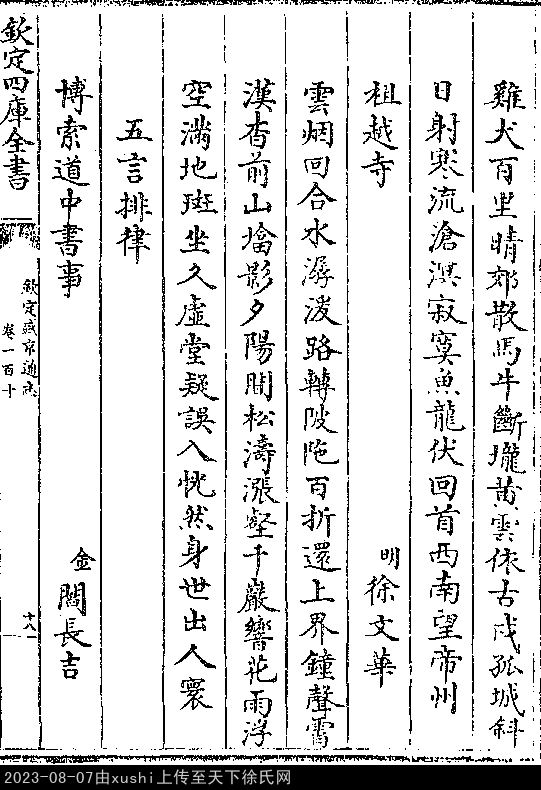 雞犬百里晴郊散馬牛斷壠黄雲依古戍孤城斜
日射寒流滄溟寂寞魚龍伏回首西南望帝州
祖越寺
明徐文華
雲烟回合水潺湲路轉陂陁百折還上界鐘聲霄
漢杳前山墖影夕陽閒松濤漲壑千巖響花雨浮
空滿地斑坐久虛堂疑誤入恍然身世出人寰
五言排律
博索道中書事
金閻長吉
欽定四庫全書
欽定盛京通志
卷一百十
十八
2023-08-07由xushi上传至天下徐氏网